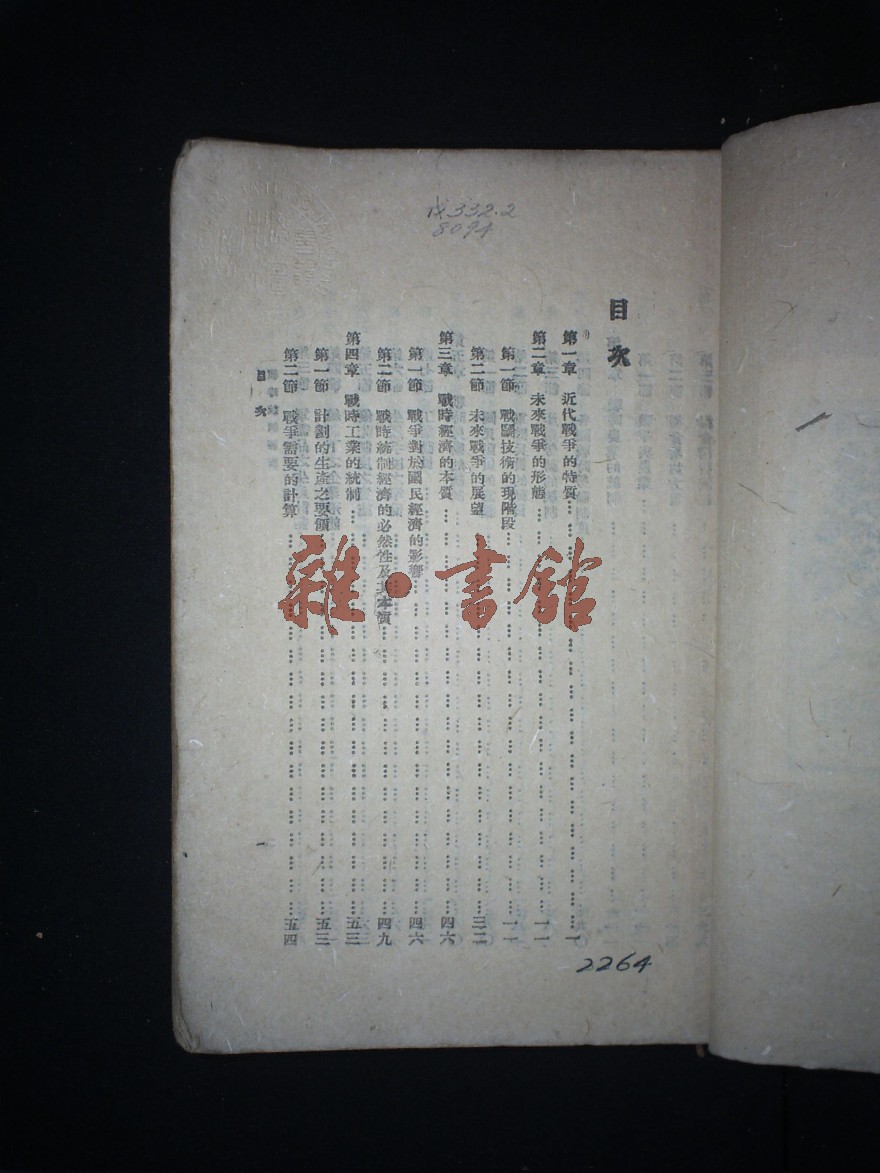 332.2
8094
目次
第一章 近代戰爭的特質…一
第二章 未來戰爭的形態…一一
第一節 戰鬭技術的現階段…一一
第二節 未來戰爭的展望…三二
第三章 戰時經濟的本質…四六
第一節 戰爭對於國民經濟的影響…四六
第二節 戰時統制經濟的必然性及其本質…四九
第四章 戰時工業的統制…五三
第一節 計劃的生產之要領…五三
第二節 戰爭需要的計算…五四
目次
一
2264
雜·書館